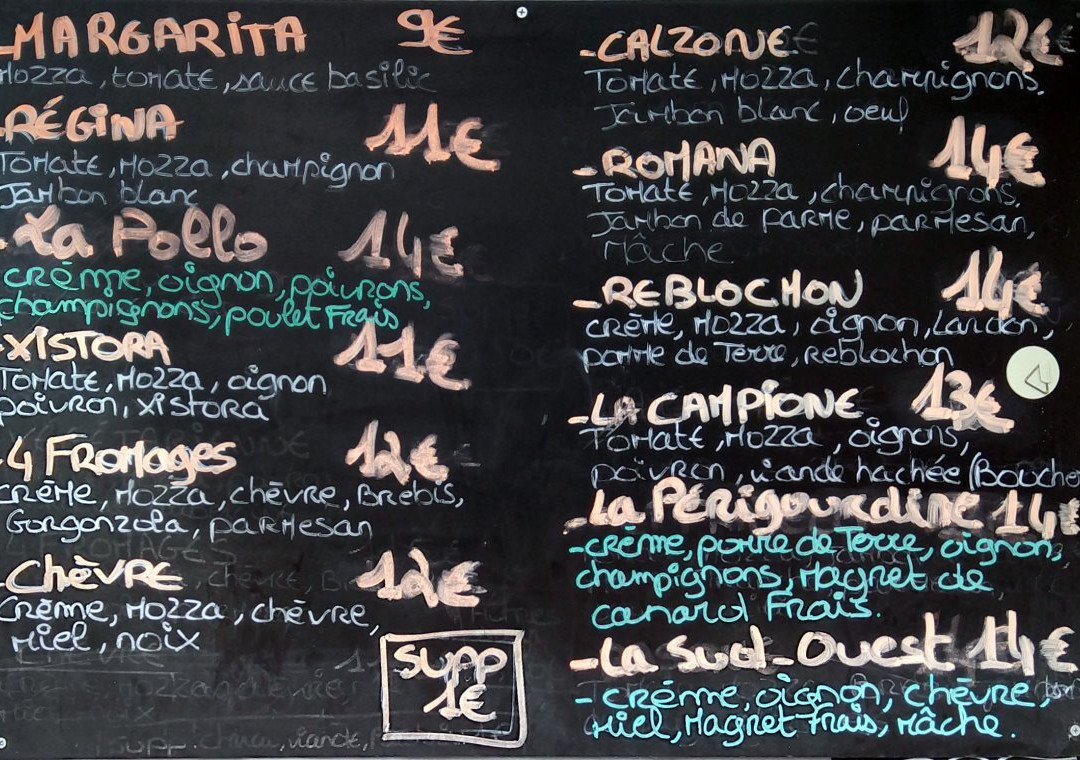 -MARGARITA 9€
Mozza, tomate, sauce basilic
-RÉGINA 11€
Tomate, Mozza, champignon
Jambon blanc
-La Pollo 14€
crème, oignon, poivrons,
champignons, poulet Frais
-XISTORA 11€
Tomate, Mozza, oignon
poivron, XISTORA
-4 FROMAGES 12€
Crème, Mozza, chèvre, Brebis,
Gorgonzola, parmesan
-CHÈVRE 12€
Crème, Mozza, chèvre,
Miel, noix
SUPP
1€
-CALZONE 12€
Tomate, Mozza, champignons,
Jambon blanc, oeuf
-ROMANA 14€
Tomate, Mozza, champignons,
Jambon de parme, parmesan,
Mâche
-REBLOCHON 14€
crème, Mozza, oignon, Lardon,
pomme de Terre, reblochon
-LA CAMPIONE 13€
Tomate, Mozza, oignons,
poivron, viande hachée (Boucher
-La Périgourdine 14€
-crème, pomme de Terre, oignons,
champignons, Magret de
canard Frais.
-La Sud-Ouest 14€
-crème, oignon, chèvre,
Miel, Magret frais, Mâche.